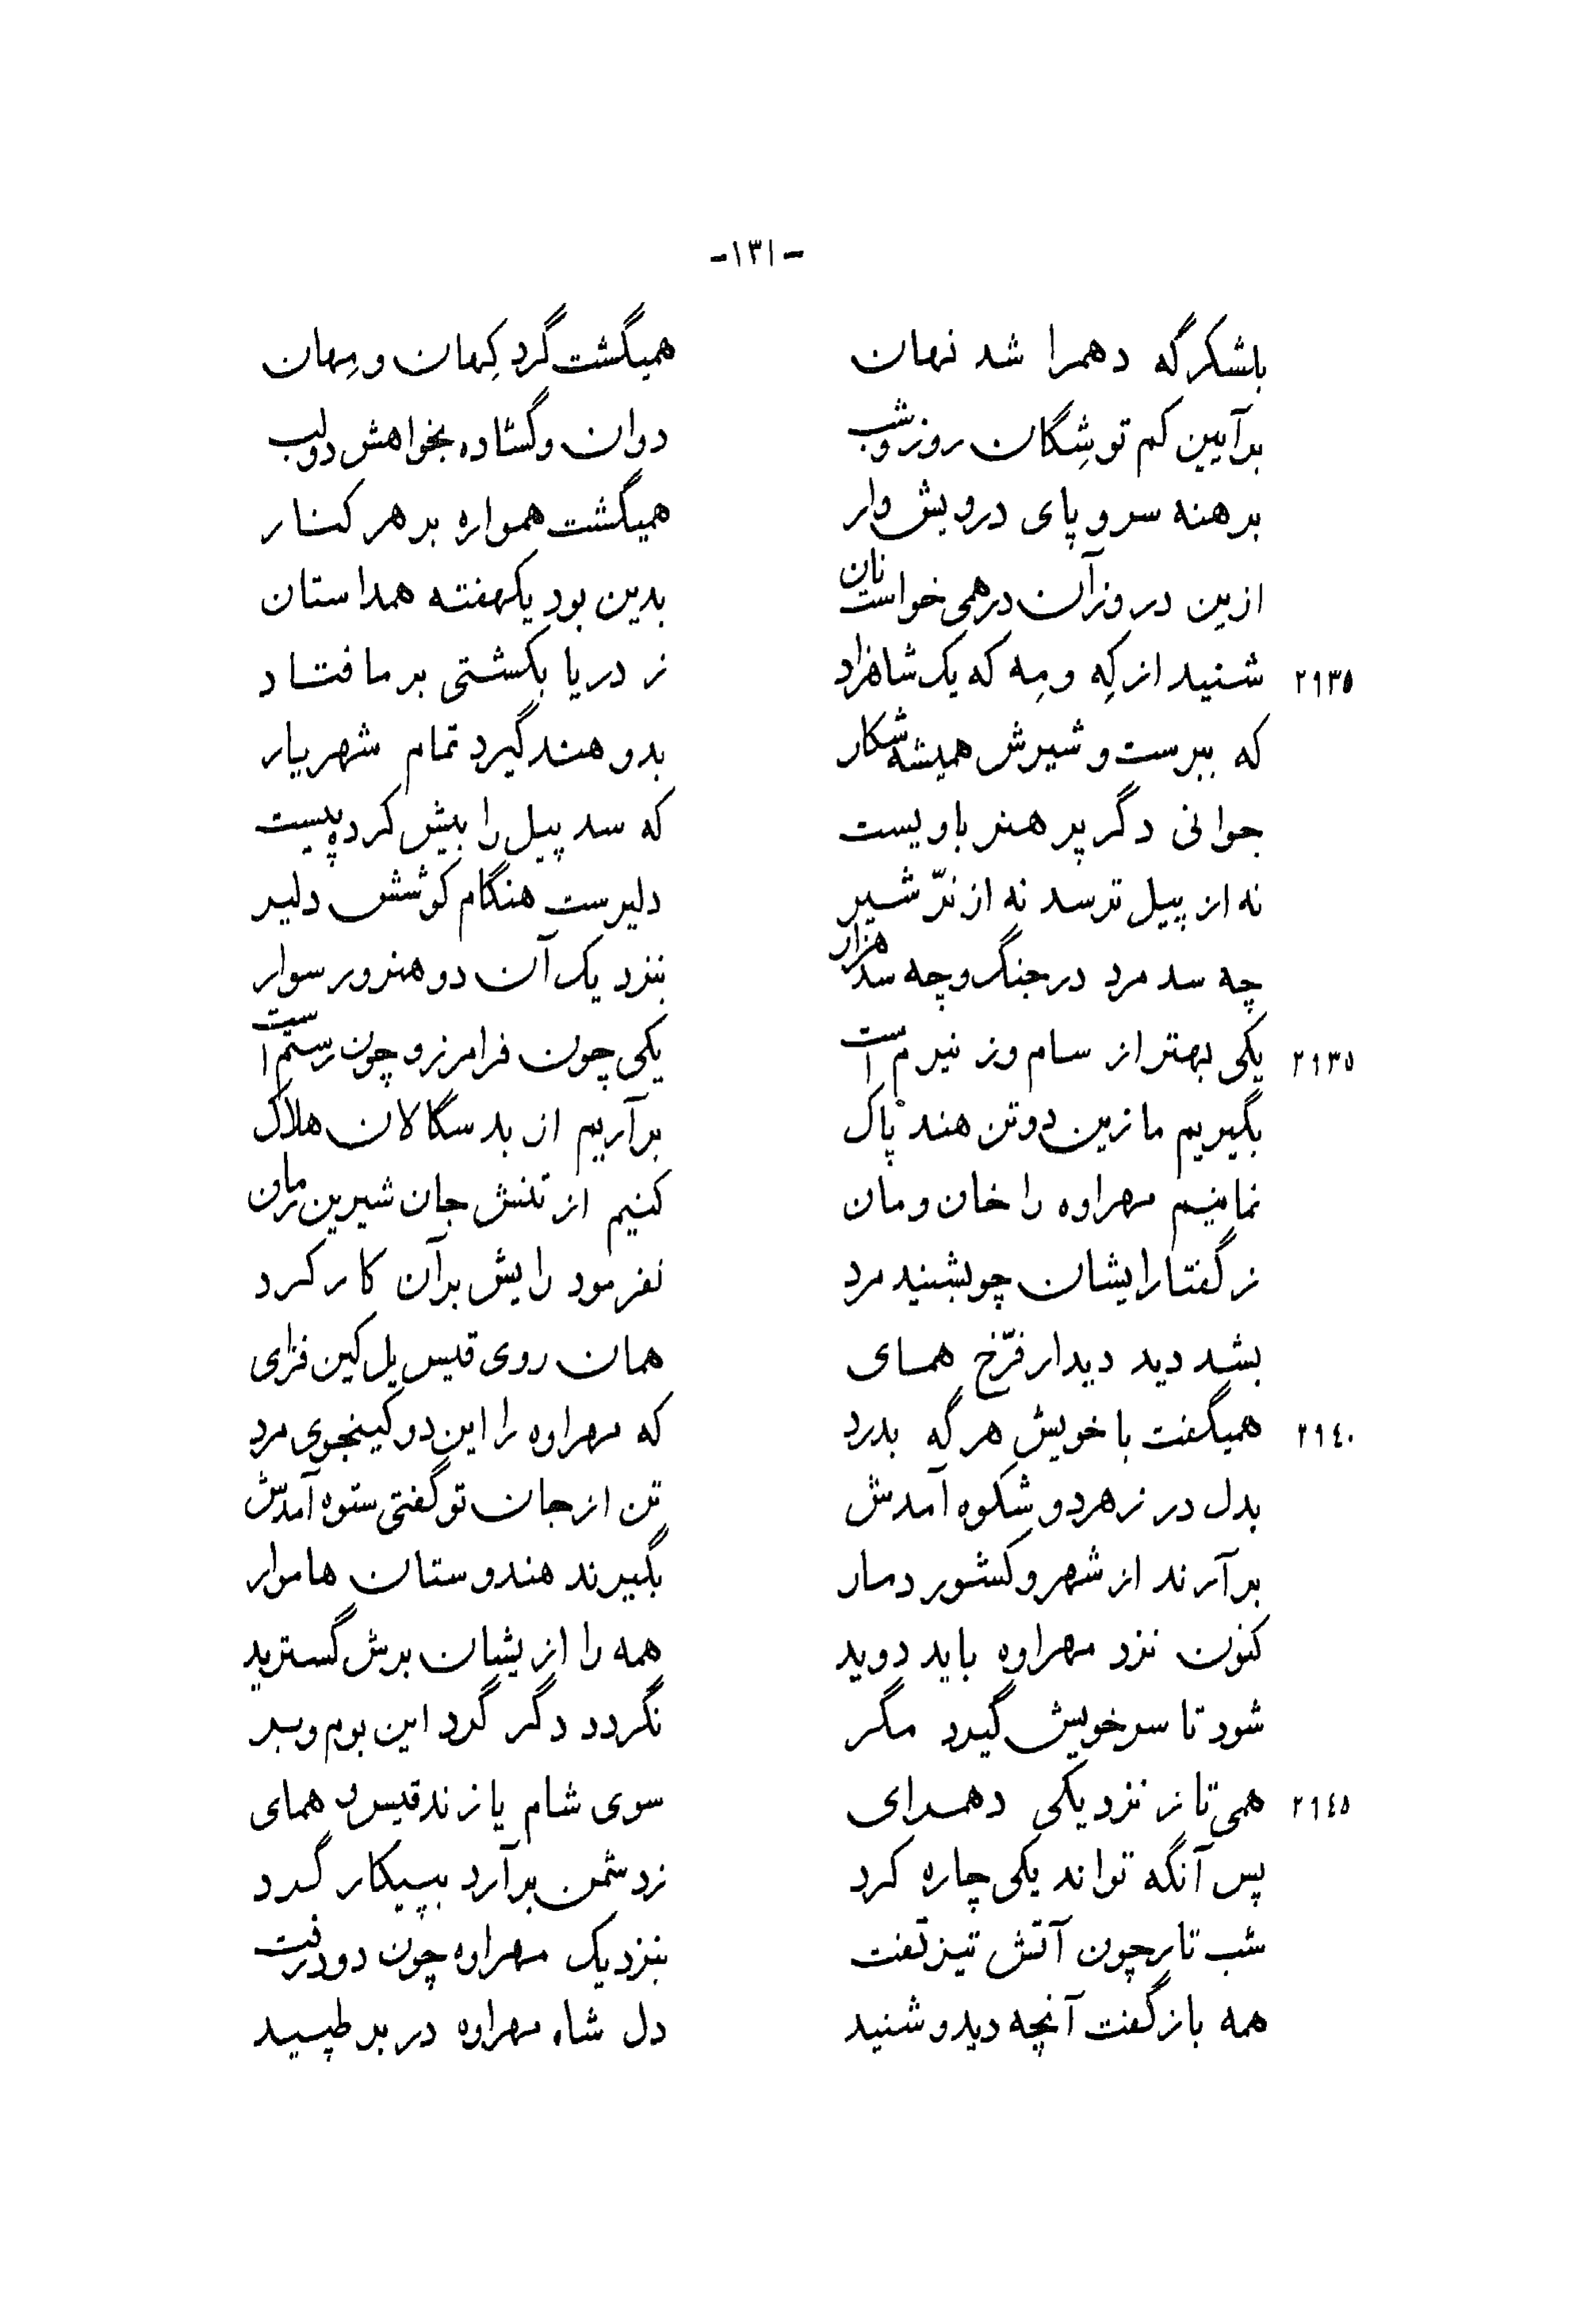 -۱۳۱-
بلشکرگه دهمرا شد نهان همیگشت گرد کِهان و مِهان
برآیین کم توشِگان روز و شب دوان و گشاده بخواهش دو لب
برهنه سر و پای درویش وار همیگشت همواره بر هر کنار
ازین در وزآن در همی خواست نان بدین بود یکهفته همداستان
۲۹۳۵ شنید از کِه و مِه که یک شاهزاد ز دریا بکشتی بر ما فتاد
که ببرست و شیرش همیشه شکار بدو هند گیرد تمام شهریار
جوانی دگر پر هنر با ویست که سد پیل را بیش کرده پیست
نه از پیل ترسد نه از نرّ شیر دلیرست هنگام کوشش دلیر
چه سد مرد در جنگ و چه سد هزار بنزد یک آن دو هنرور سوار
۲۹۳۵ یکی بهتر از سام وز نیرم است یکی چون فرامرز و چون رستم است
بگیریم ما زین دو تن هند پاک برآریم از بد سگالان هلاک
نمانیم مهراوه را خان و مان کنیم از تنش جان شیرین رمان
ز گفتار ایشان چو بشنید مرد نفرمود رایش بر آن کار کرد
بشد دید دیدار فرّخ همای همان روی قیس یل کین فزای
۲۹۴۰ همیگفت با خویش هر گه بدرد که مهراوه را این دو کینجوی مرد
بدل در ز هر دو شکوه آمدش تن از جان تو گفتی ستوه آمدش
برآرند از شهر و کشور دمار بگیرند هندوستان هاموار
کنون نزد مهراوه باید دوید همه راز یشان برش گسترید
شود تا سر خویش گیرد مگر نگردد دگر گرد این بوم و بر
۲۹۴۵ همی تا ز نزدیکی دهمرای سوی شام یازند قیس و همای
پس آنگه تواند یکی چاره کرد ز دشمن برآرد بپیکار گرد
شب تار چون آتش تیز تفت بنزدیک مهراوه چون دود رفت
همه باز گفت آنچه دید و شنید دل شاه مهراوه در بر طپید